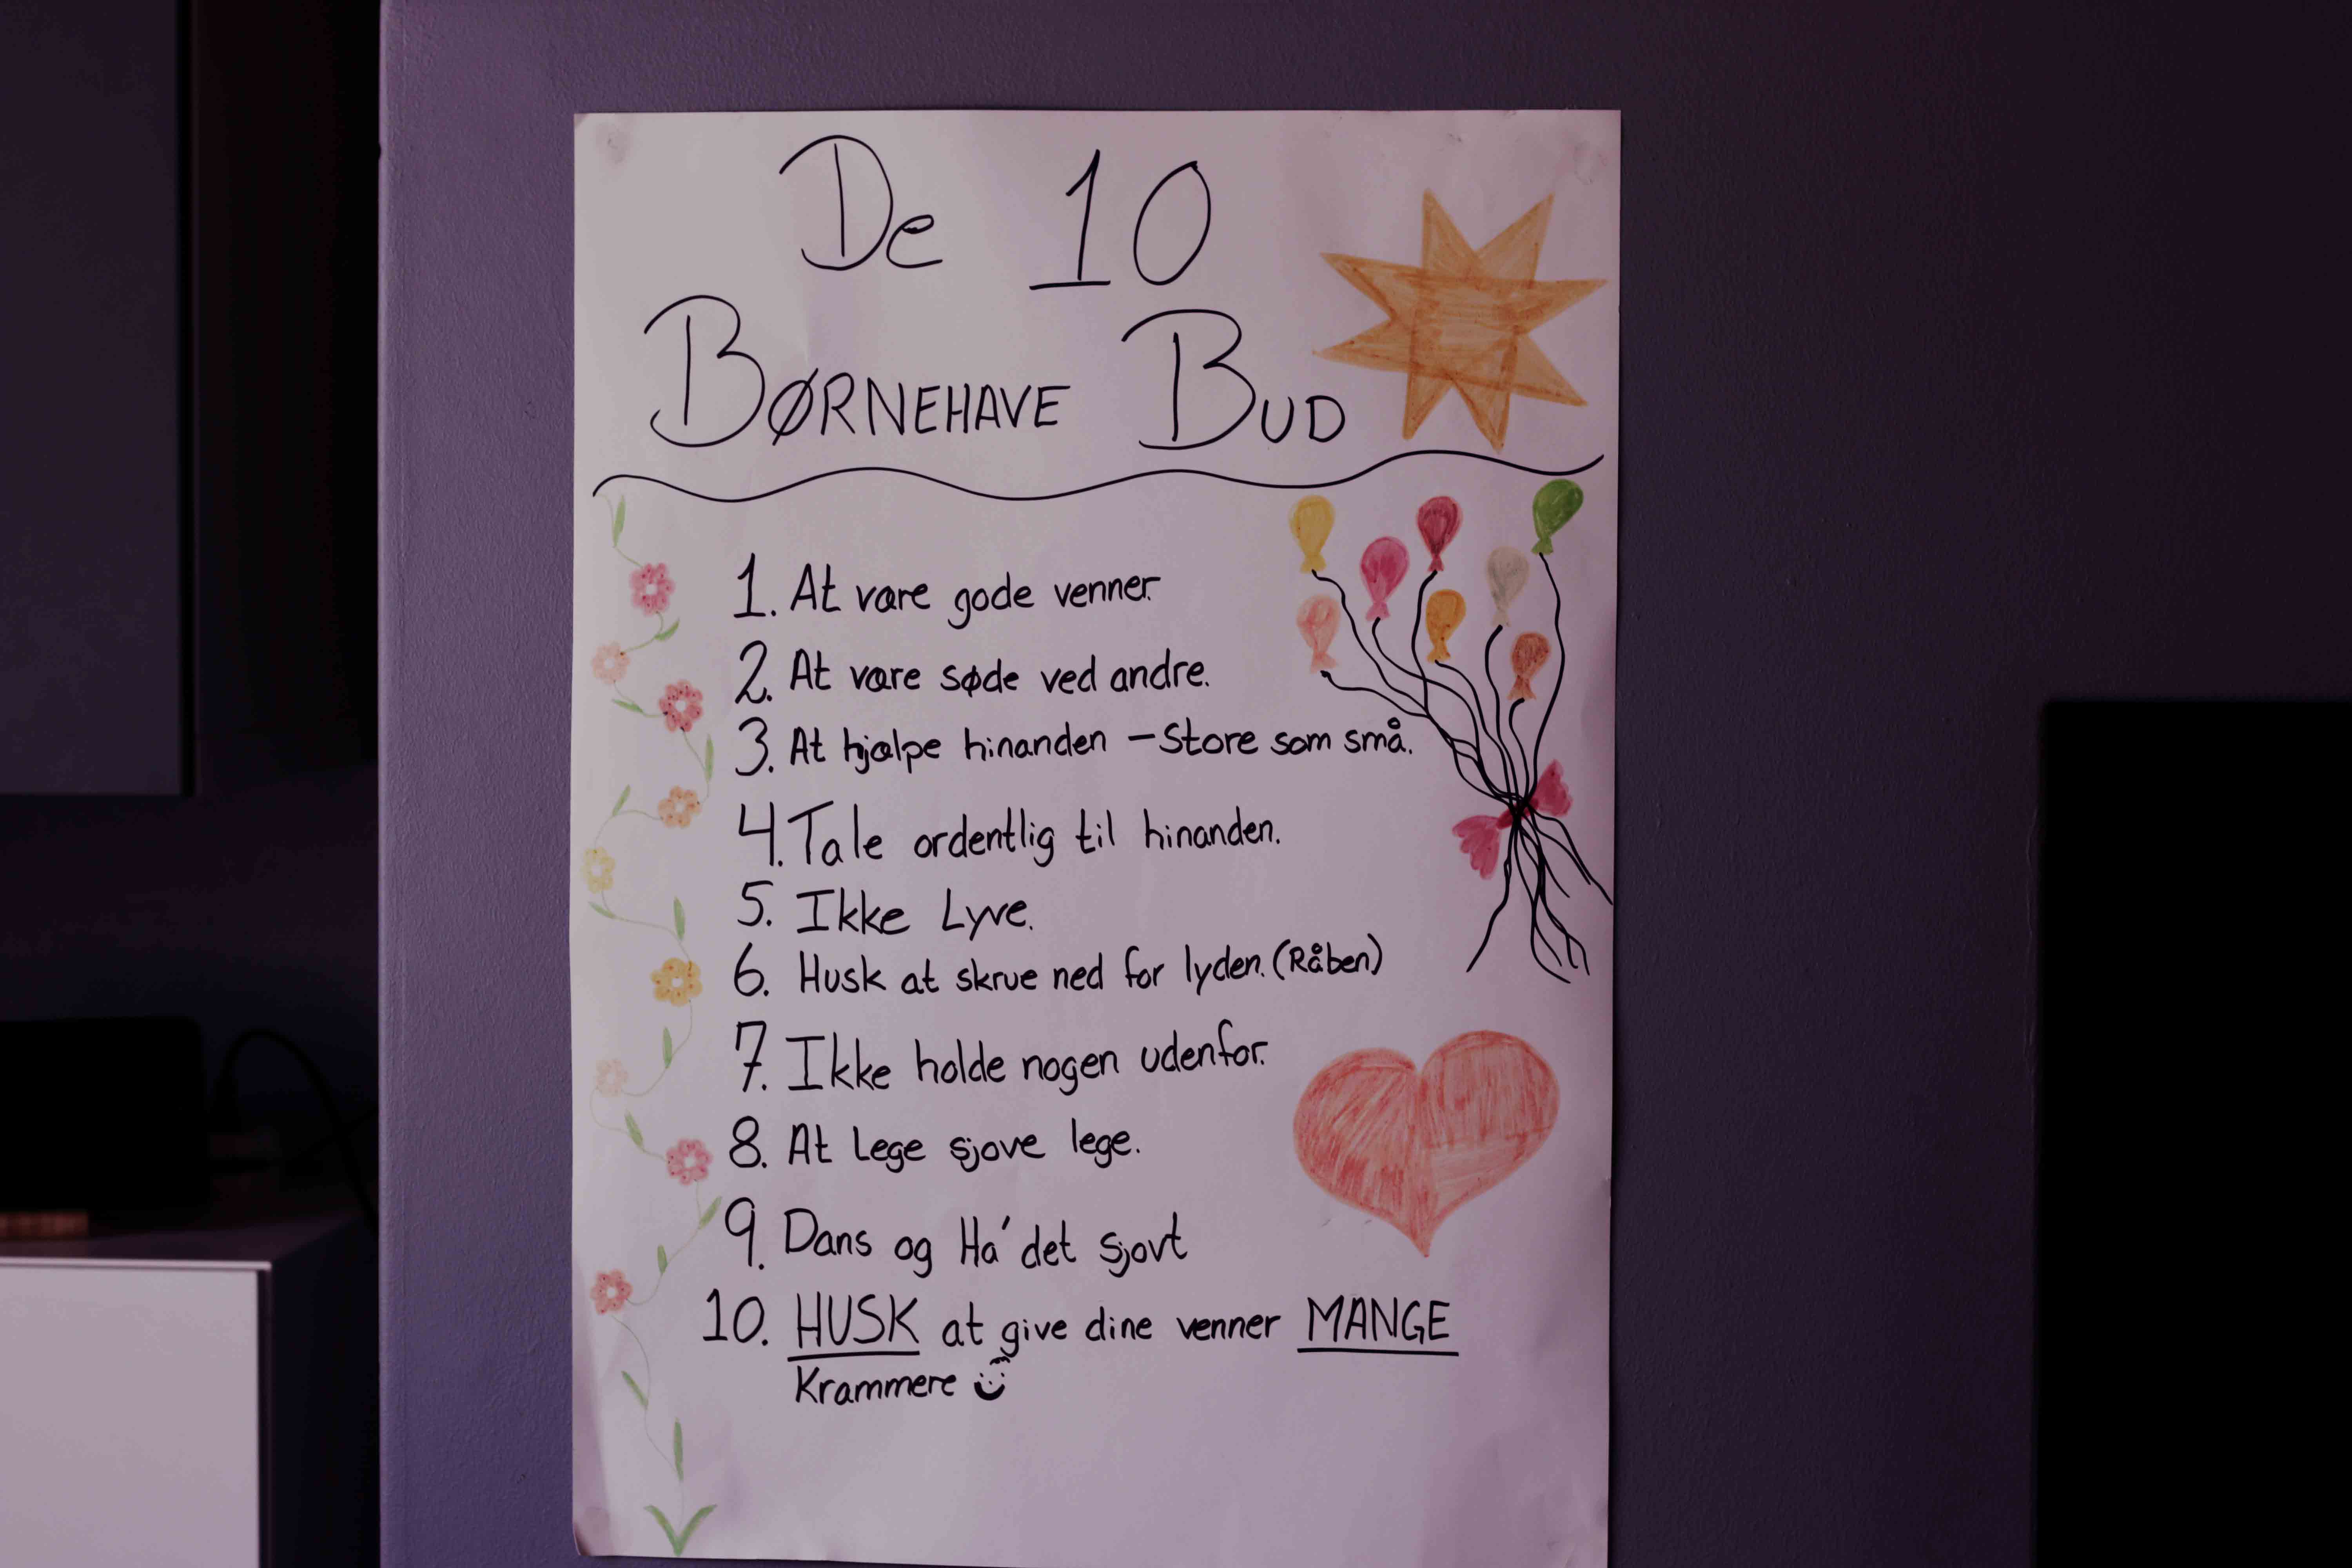 De 10
BØRNEHAVE BUD
1. At være gode venner.
2. At være søde ved andre.
3. At hjælpe hinanden - Store som små.
4. Tale ordentlig til hinanden.
5. Ikke Lyve.
6. Husk at skrue ned for lyden. (Råben)
7. Ikke holde nogen udenfor.
8. At Lege sjove lege.
9. Dans og Ha' det sjovt
10. HUSK at give dine venner MANGE
Krammere